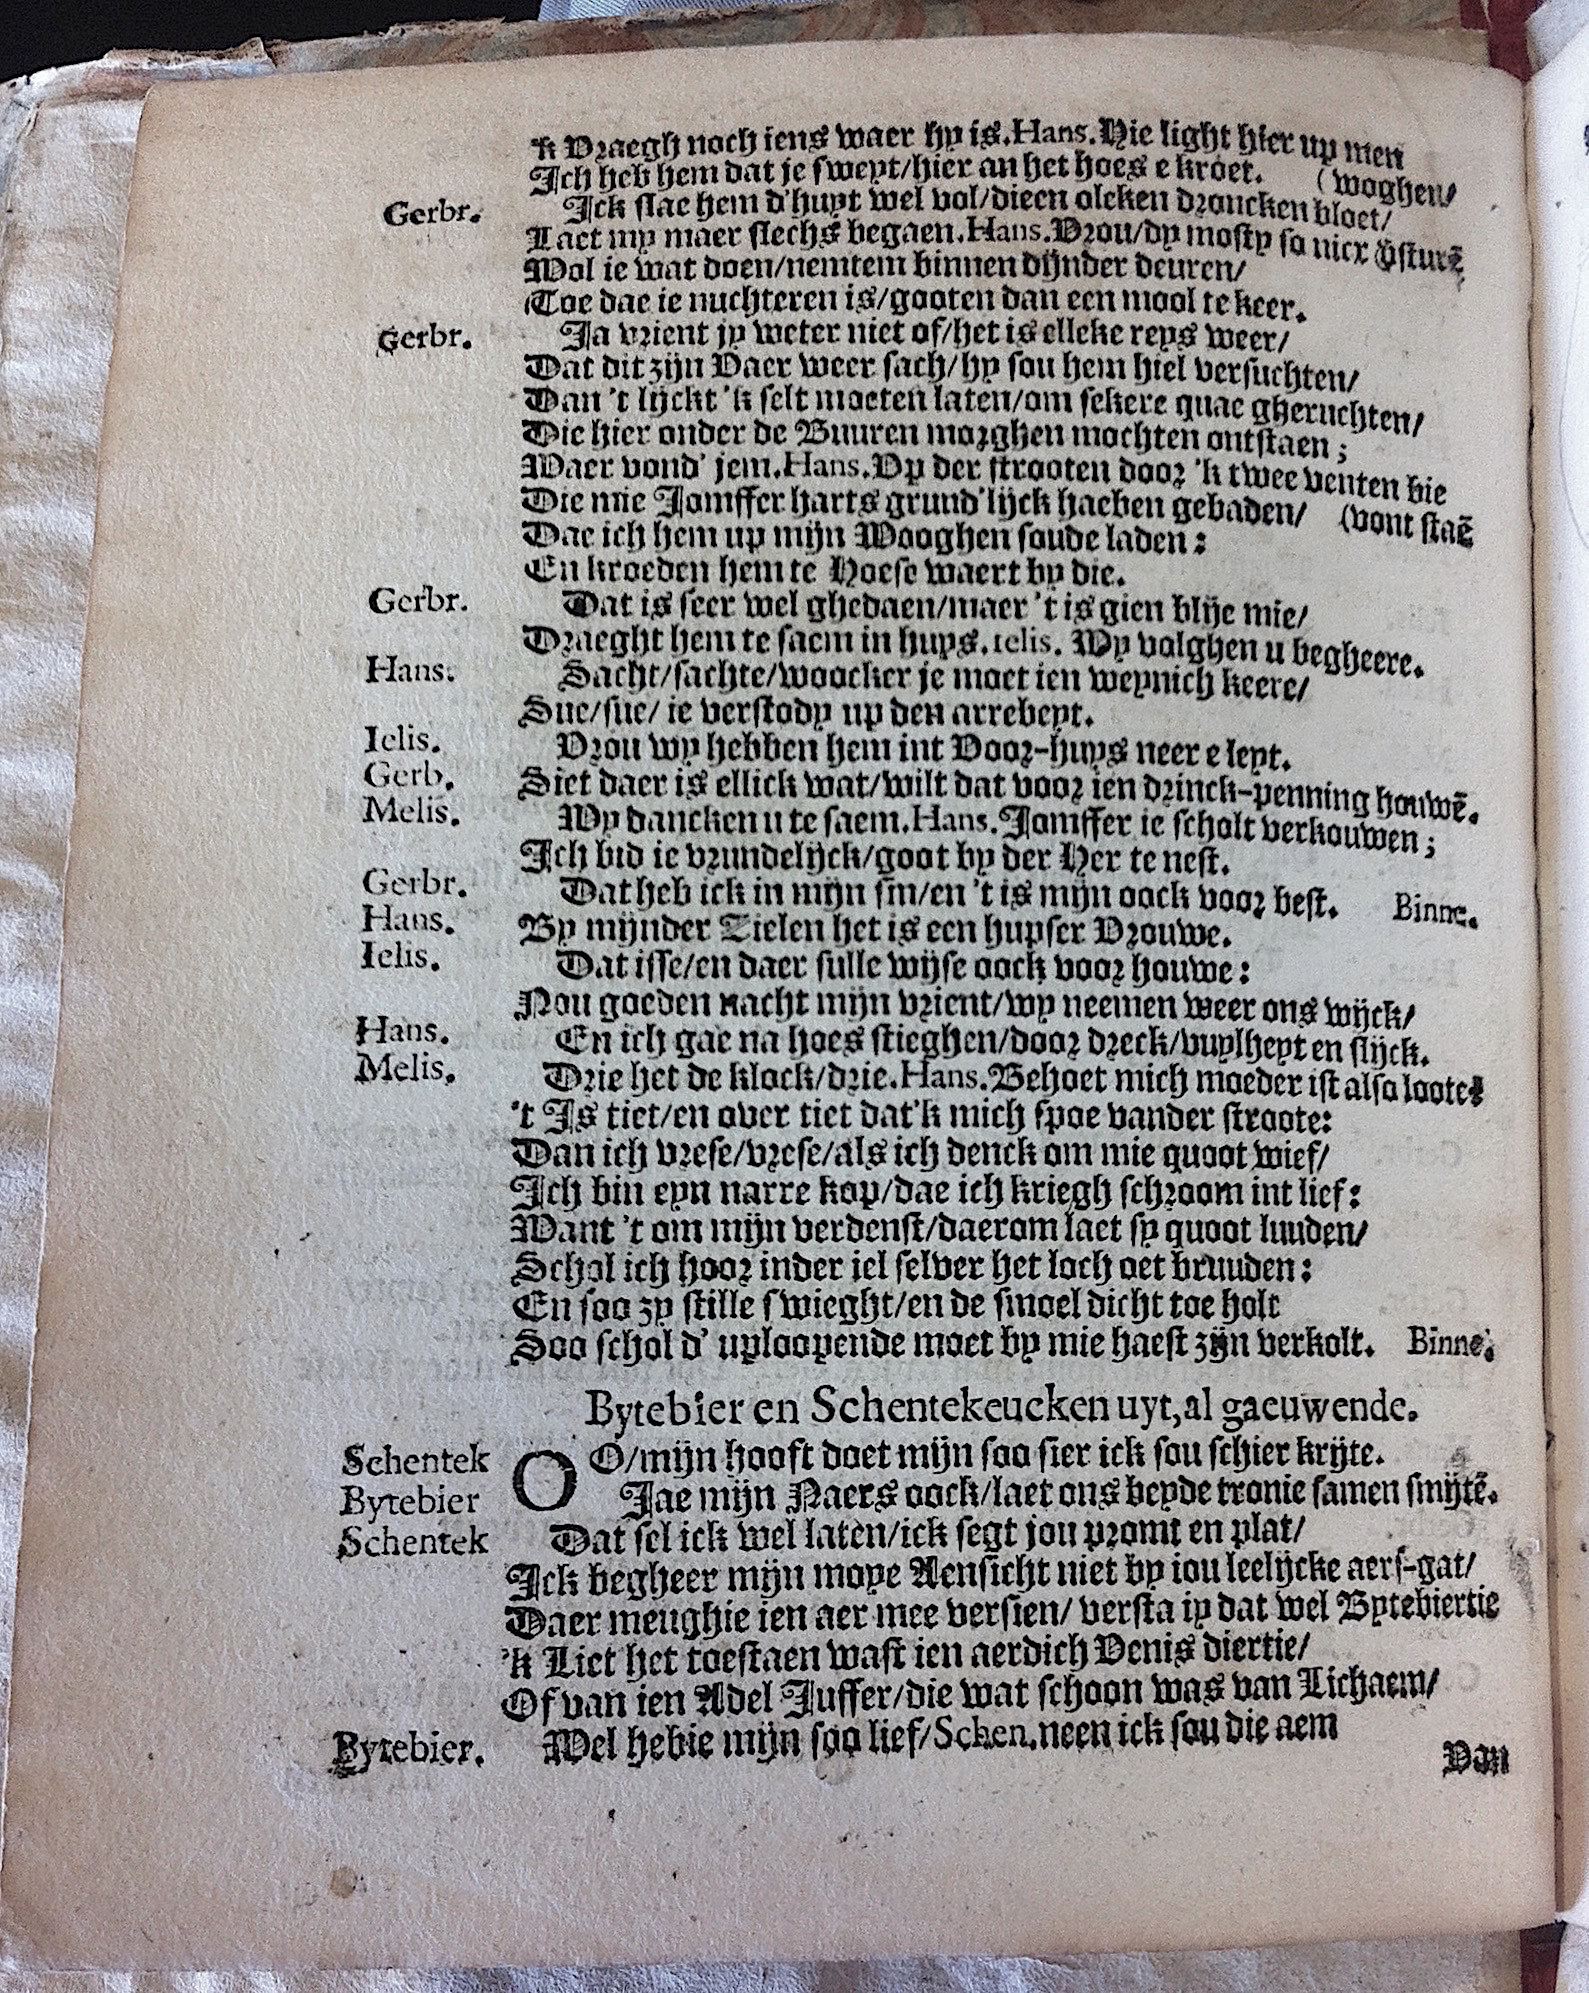 'k Vraegh noch iens waer hy is. Hans. Hie light hier up men
Ich heb hem dat je sweyt/hier an het hoes e kroet. (woghen/
Gerbr. Ick slae hem d'huyt wel vol/dieen olcken droncken bloet/
Laet my maer slechs begaen. Hans. Vrou/dy mosty so nicx ōsturē
Wol ie wat doen/nemtem binnen dijnder deuren/
Toe dae ie nuchteren is/gooten dan een mool te keer.
Gerbr. Ja vrient jy weter niet of/het is elleke reys weer/
Dat dit zijn Vaer weer sach/hy sou hem hiel versuchten/
Dan 't lijckt 'k selt moeten laten/om sekere quae gheruchten/
Die hier onder de Buuren morghen mochten ontstaen;
Waer vond' jem. Hans. Op der strooten door 'k twee venten bie
Die mie Jomffer harts grund'lijck haeben gebaden/ (vont staē
Dae ich hem up mijn Wooghen soude laden:
En kroeden hem te Hoese waert by die.
Gerbr. Dat is seer wel ghedaen/maer 't is gien blije mie/
Draeght hem te saem in huys. ielis. Wy volghen u begheere.
Hans. Sacht/sachte/woocker je moet ien weynich keere/
Sue/sue/ ie verstody up den arrebeyt.
Ielis. Vrou wy hebben hem int Voor-huys neer e leyt.
Gerb. Siet daer is ellick wat/wilt dat voor ien drinck-penning houwē.
Melis. Wy dancken u te saem. Hans. Jomffer ie scholt verkouwen;
Ich bid ie vrundelijck/goot by der Her te nest.
Gerbr. Dat heb ick in mijn sin/en 't is mijn oock voor best. Binne.
Hans. By mijnder Zielen het is een hupser Vrouwe.
Ielis. Dat isse/en daer sulle wijse oock voor houwe:
Nou goeden nacht mijn vrient/wy neemen weer ons wijck/
Hans. En ich gae na hoes stieghen/door dreck/vuylheyt en slijck.
Melis. Drie het de klock/drie. Hans. Behoet mich moeder ist also loote!
't Is tiet/en over tiet dat'k mich spoe vander stroote:
Dan ich vrese/vrese/als ich denck om mie quoot wief/
Ich bin eyn narre kop/dae ich kriegh schroom int lief:
Want 't om mijn verdenst/daerom laet sy quoot luuden/
Schol ich hoor inder iel selver het loch oet bruuden:
En soo zy stille swieght/en de smoel dicht toe holt
Soo schol d' uploopende moet by mie haest zijn verkolt. Binne.
Bytebier en Schentekeucken uyt, al gaeuwende.
Schentek O O/mijn hooft doet mijn soo sier ick sou schier krijte.
Bytebier Jae mijn Naers oock/laet ons beyde tronie samen smijtē.
Schentek Dat sel ick wel laten/ick segt jou promt en plat/
Ick begheer mijn moye Aensicht niet by iou leelijcke aers-gat/
Daer meughie ien aer mee versien/ versta iy dat wel Bytebiertie
'k Liet het toestaen wast ien aerdich Venis diertie/
Of van ien Adel Juffer/die wat schoon was van Lichaem/
Bytebier. Wel hebie mijn soo lief/Schen. neen ick sou die aem
Dan